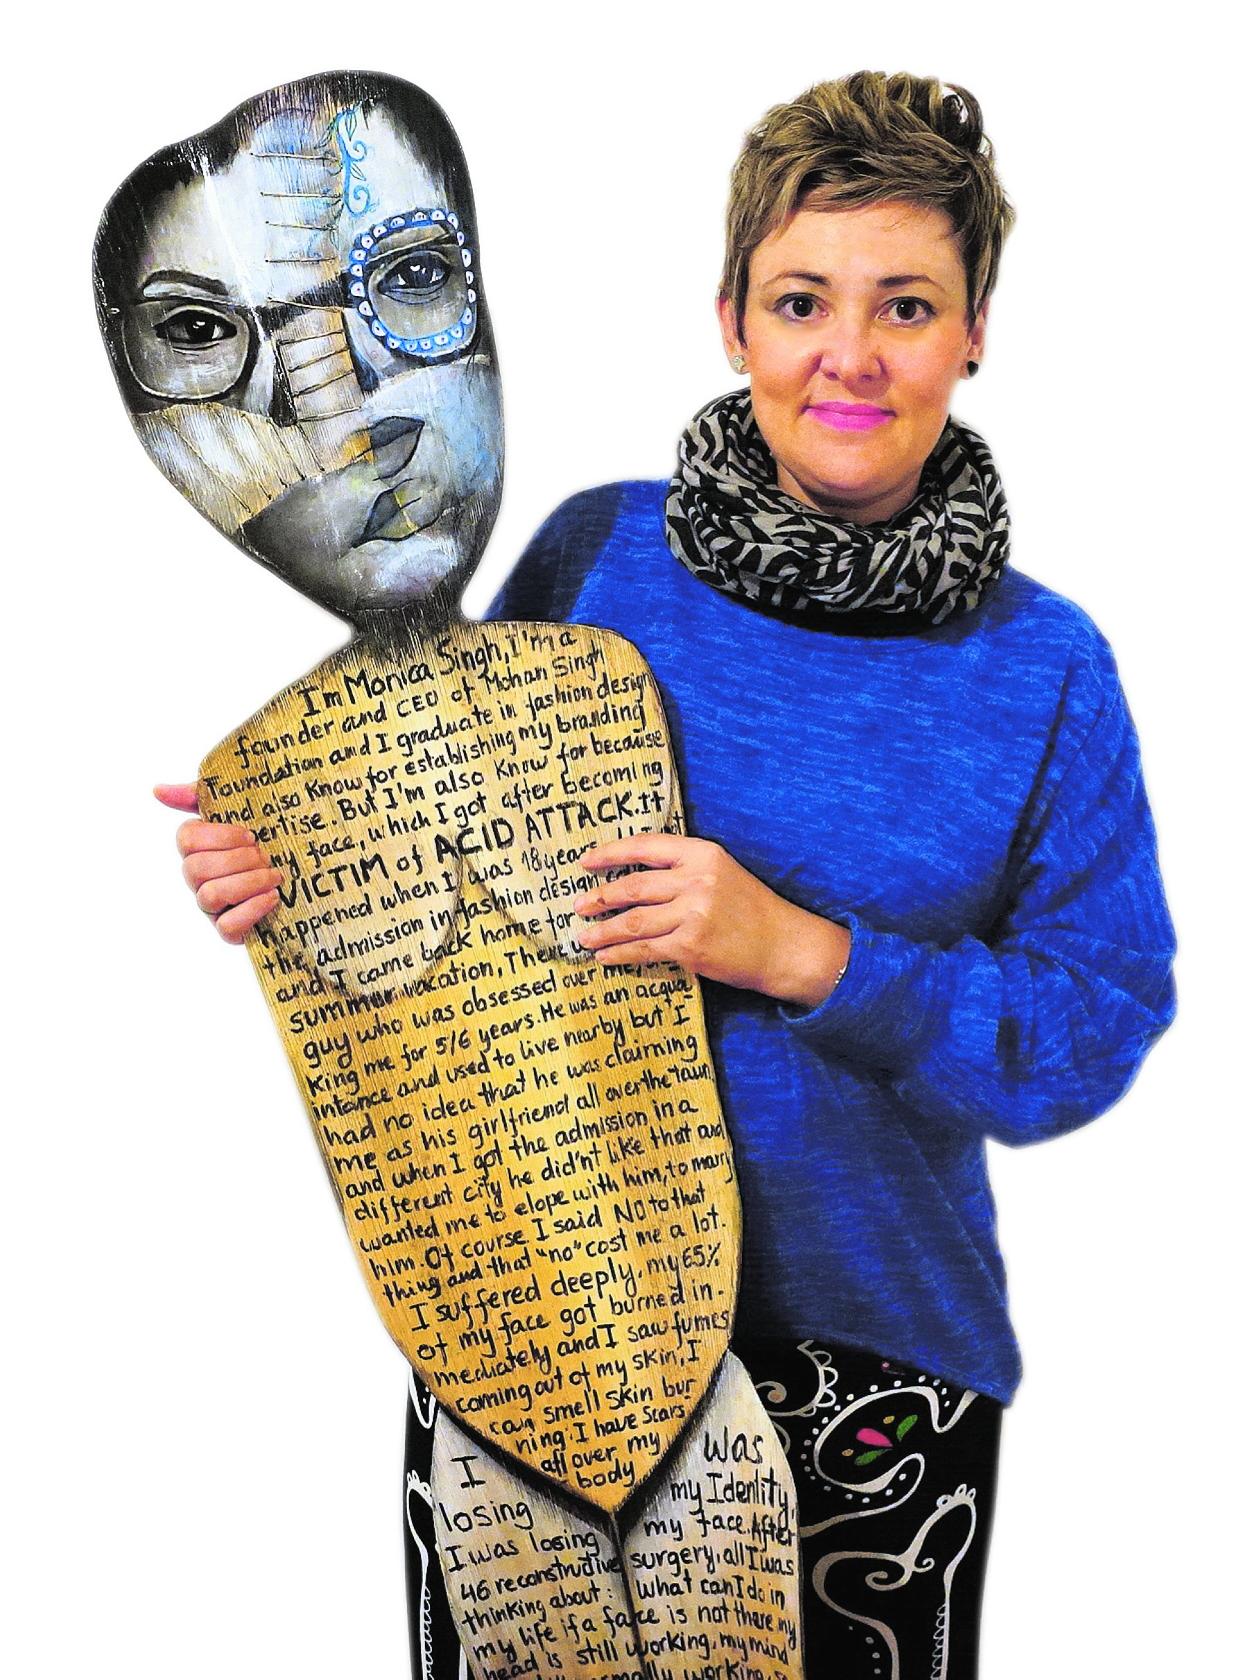 I'm Monica Singh, I'm a
founder and CEO of Mohan Singh
Foundation and I graduate in fashion design
and also know for establishing my branding
pertise. But I'm also know for because
my face, which I got after becoming
VICTIM of ACID ATTACK. It
happened when I was 18 years
the admission in fashion design
and I came back home for
summer vacation, There
guy who was obsessed over me,
king me for 5/6 years. He was an acqua
intance and used to live nearby but I
had no idea that he was claiming
me as his girlfriend all over the town
and when I got the admission in a
different city he did'nt like that and
wanted me to elope with him, to marry
him. Of course I said NO to that
thing and that "no" cost me a lot.
I suffered deeply, my 65%
of my face got burned in.
mediately and I saw fumes
coming out of my skin, I
can smell skin bur
ning. I have scars
all over my
body
I was
losing my Identity,
I was losing my face. After
46 reconstructive surgery, all I was
thinking about: what can I do in
my life if a face is not there my
head is still working, my mind
working,